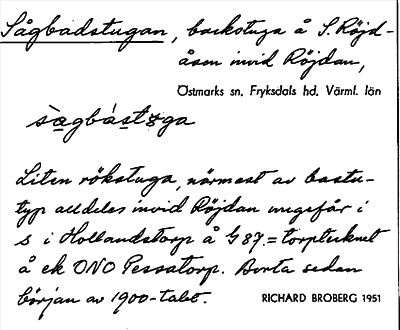 Sågbadstugan, backstuga å S. Röjd-
åsen invid Röjdan,
Östmarks sn, Fryksdals hd, Värml. län
sàgbástuga
Liten rökstuga, närmast av bastu-
typ alldeles invid Röjdan ungefär i
s i Hollandstorp å G 87. = torptecknet
å ek ONO Pessatorp. Borta sedan
början av 1900-talet.
RICHARD BROBERG 1951